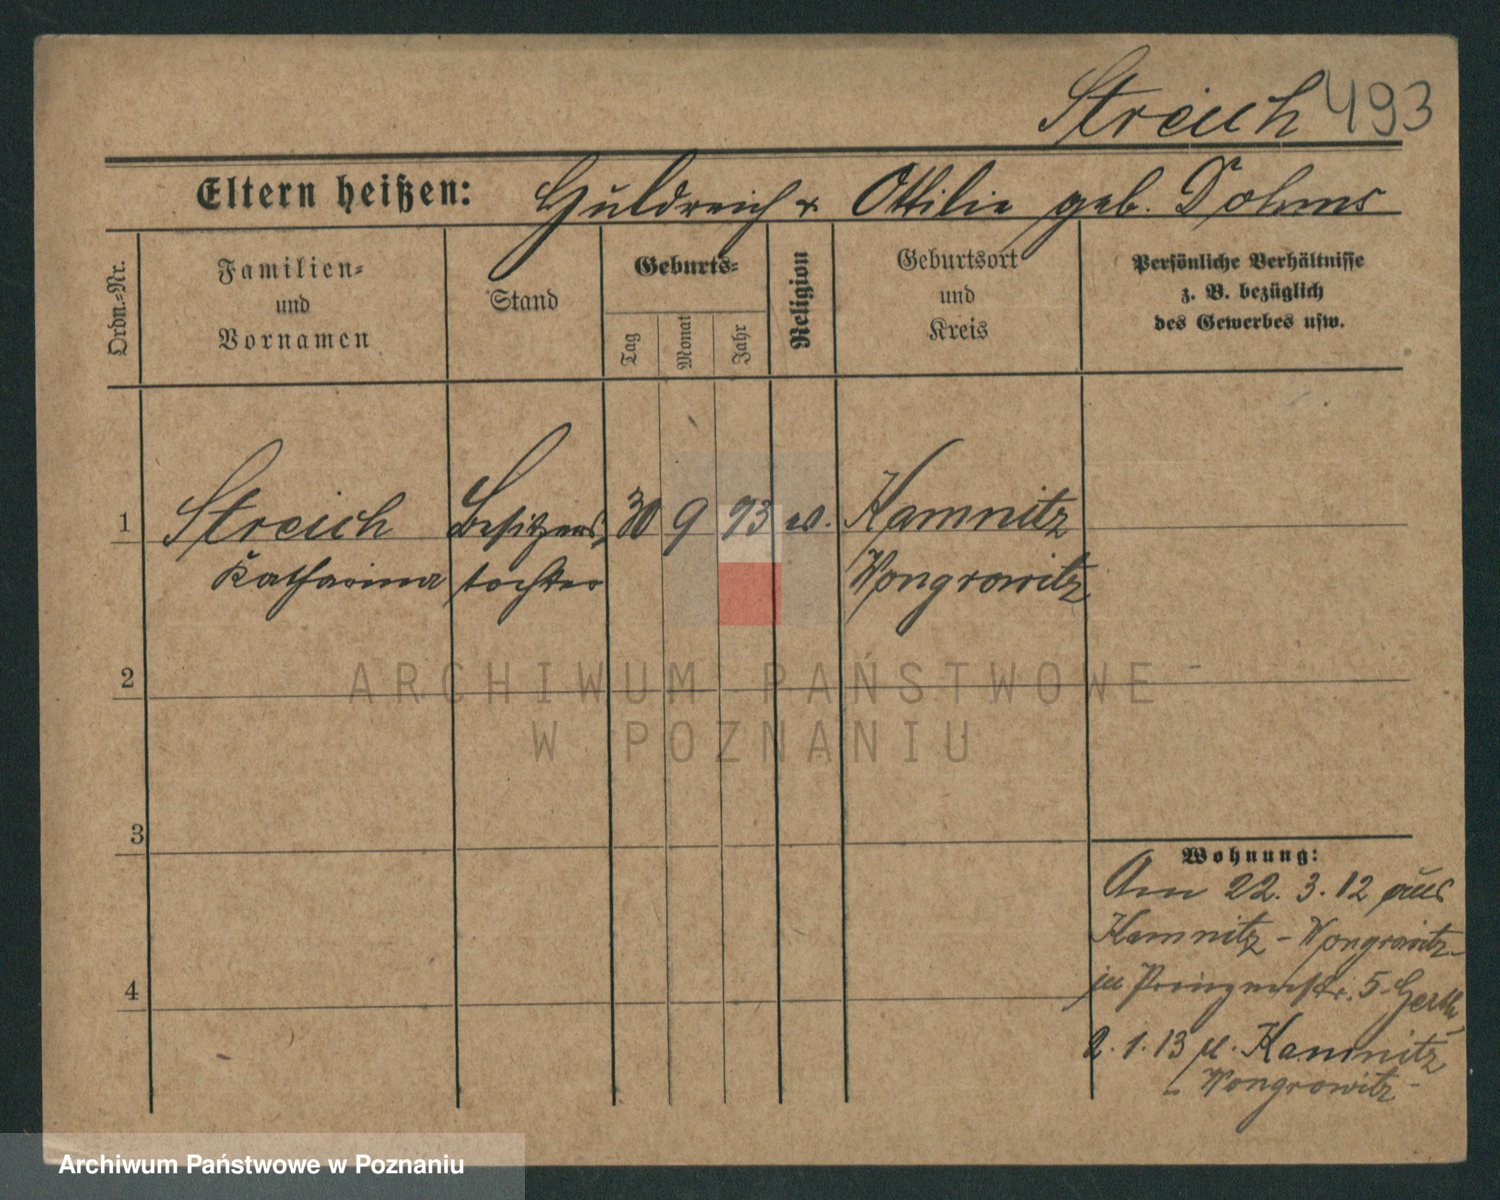 Streich 493
Eltern heißen: Huldreich & Ottilie geb. Dohms
Ordn.-Nr.
Familien-
und
Vornamen
Stand
Geburts-
Tag
Monat
Jahr
Religion
Geburtsort
und
Kreis
Persönliche Verhältnisse
z. B. bezüglich
des Gewerbes usw.
1 Streich Besitzers 30 9 93 ev. Kamnitz
Katharina tochter Wongrowitz
2
3
4
Wohnung:
Am 22. 3. 12 aus
Kamnitz - Wongrowitz
in Prinzenstr. 5
2. 1. 13 n. Kamnitz
Wongrowitz
ARCHIWUM PAŃSTWOWE
W POZNANIU
Archiwum Państwowe w Poznaniu